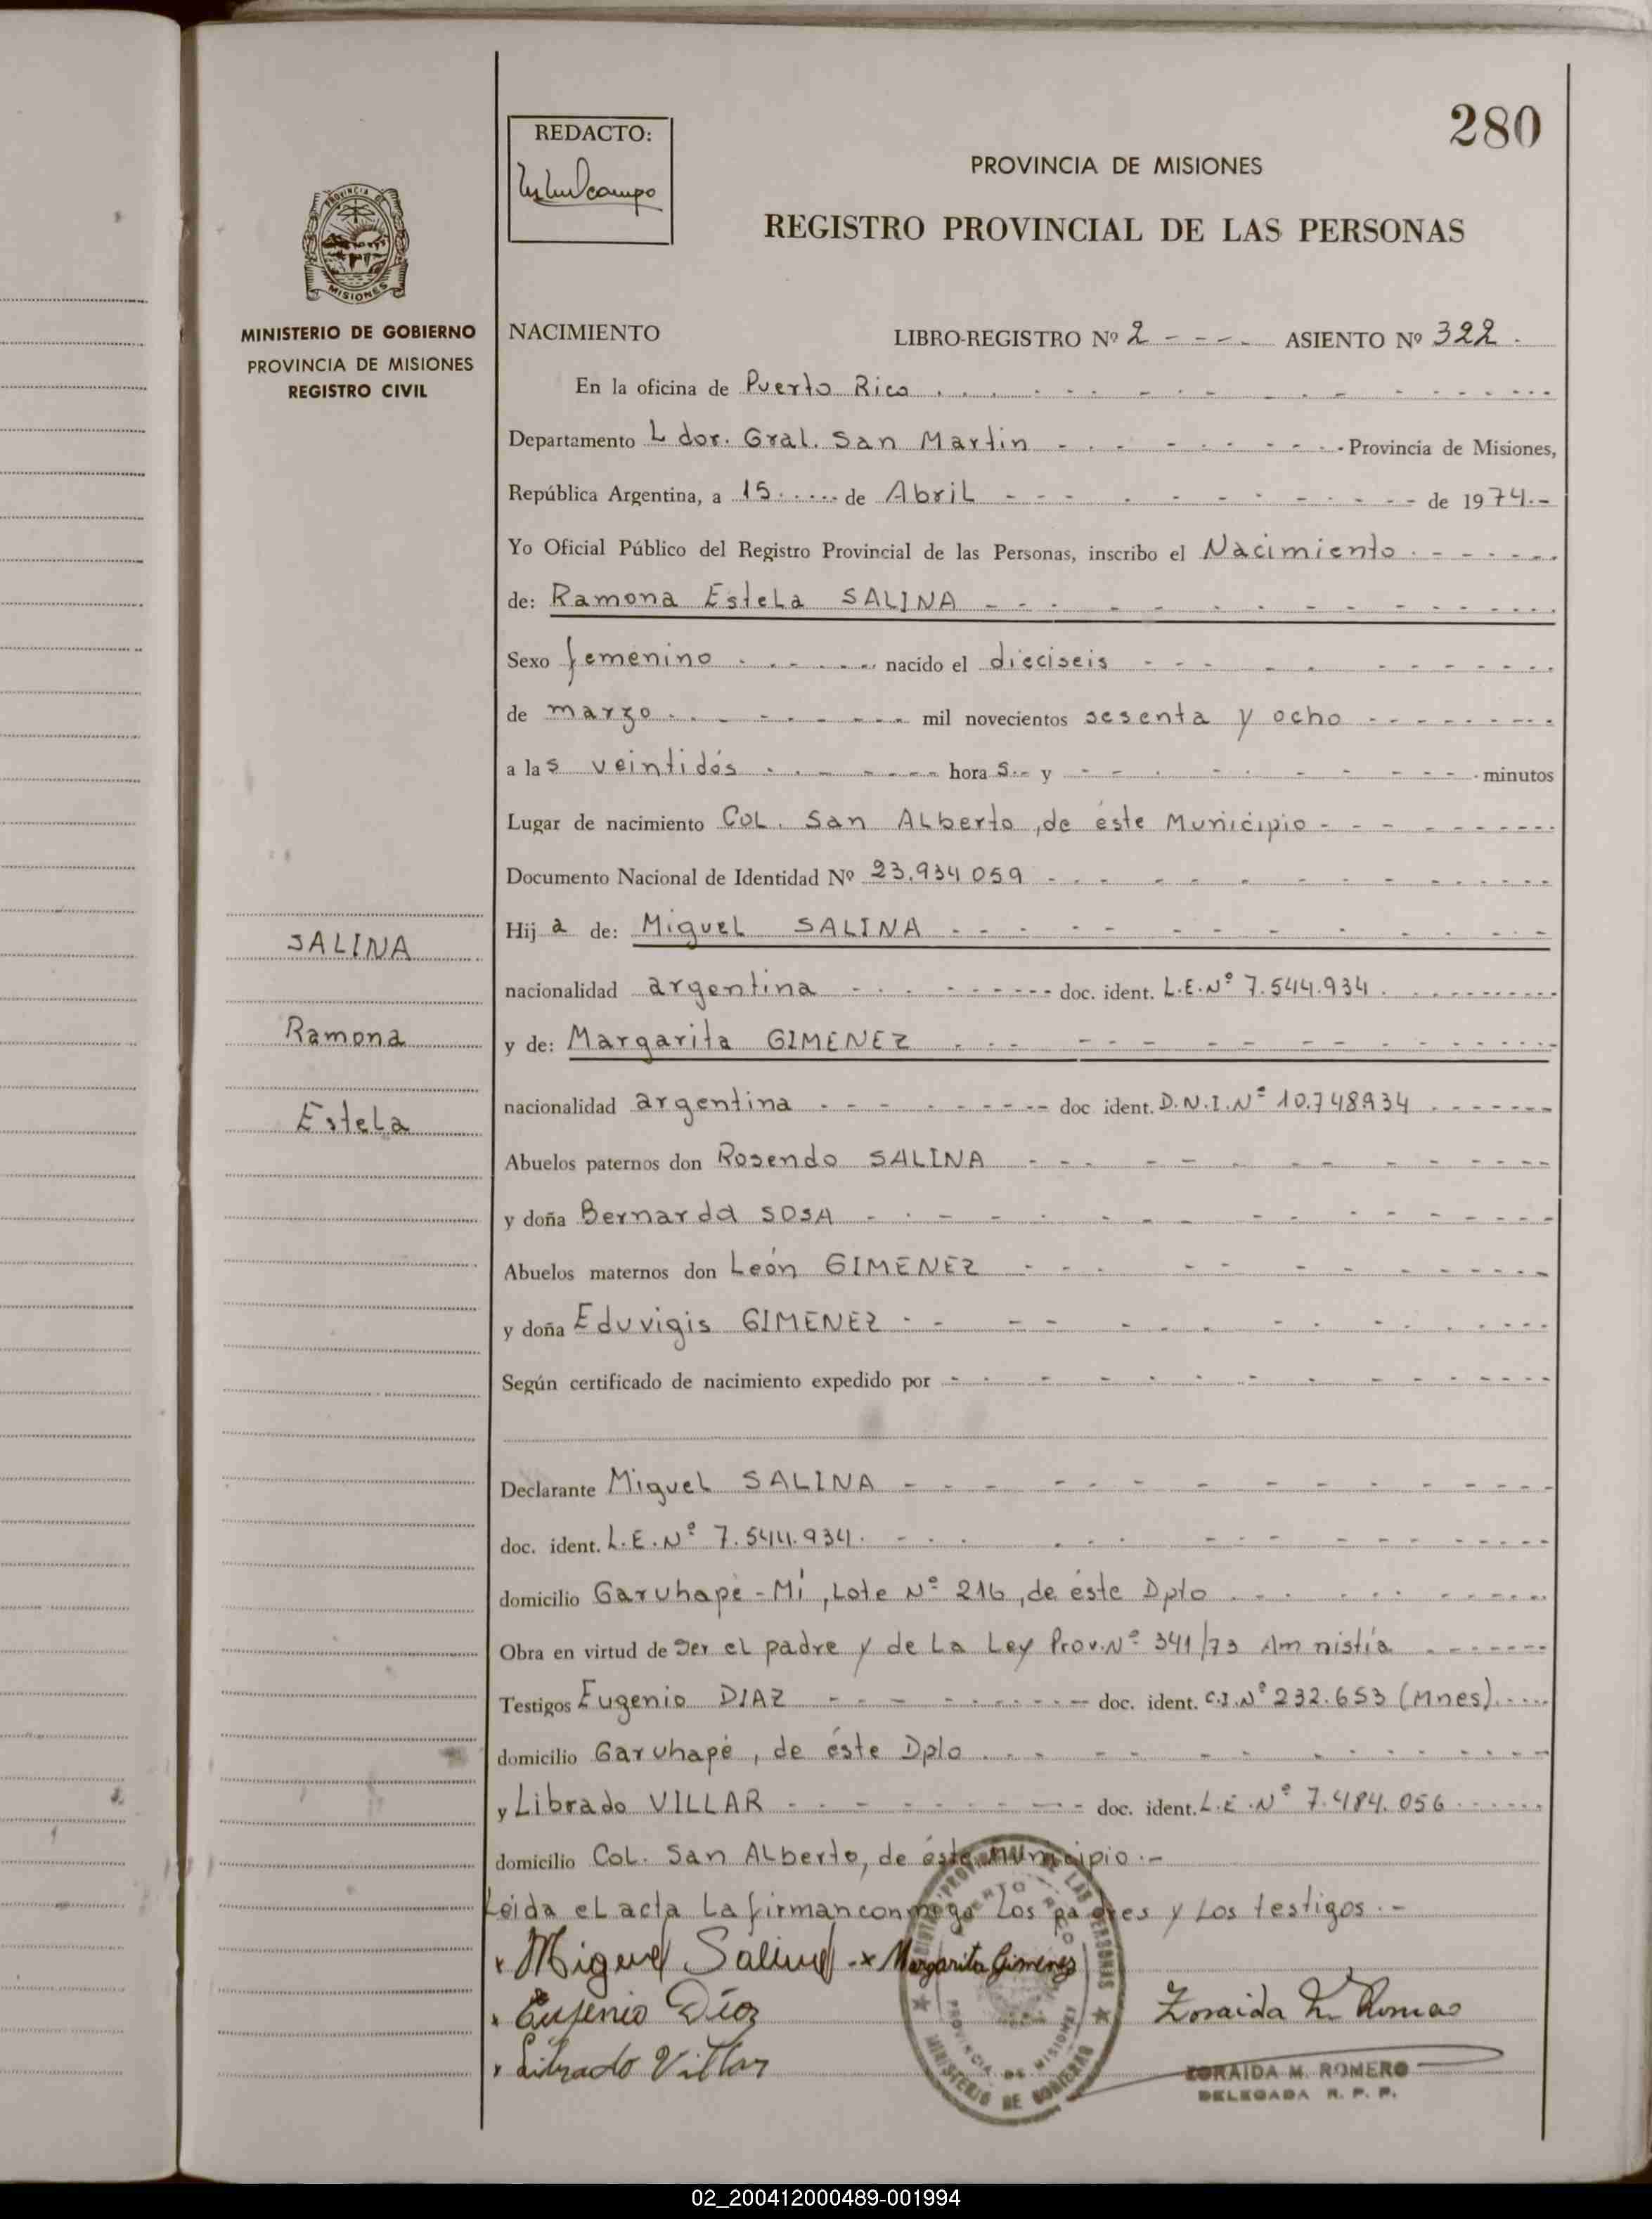 280
REDACTO:
PROVINCIA DE MISIONES
REGISTRO PROVINCIAL DE LAS PERSONAS
PROVINCIA DE
MISIONES
MINISTERIO DE GOBIERNO
PROVINCIA DE MISIONES
REGISTRO CIVIL
SALINA
Ramona
Estela
NACIMIENTO LIBRO-REGISTRO Nº 2 - - - - ASIENTO Nº 322 .
En la oficina de Puerto Rico
Departamento Ldor. Gral. San Martin - Provincia de Misiones,
República Argentina, a 15 de Abril - de 1974.-
Yo Oficial Público del Registro Provincial de las Personas, inscribo el Nacimiento
de: Ramona Estela SALINA
Sexo femenino nacido el dieciseis
de marzo mil novecientos sesenta y ocho
a las veintidós horas.- y - minutos
Lugar de nacimiento Col. San Alberto, de éste Municipio
Documento Nacional de Identidad Nº 23.934 059
Hija de: Miguel SALINA
nacionalidad argentina doc. ident. L.E.Nº 7.544.934.
y de: Margarita GIMENEZ
nacionalidad argentina doc ident. D.N.I.Nº 10.748934
Abuelos paternos don Rosendo SALINA
y doña Bernarda SOSA
Abuelos maternos don León GIMENEZ
y doña Eduvigis GIMENEZ
Según certificado de nacimiento expedido por
Declarante Miguel SALINA
doc. ident. L.E.Nº 7.544.934.
domicilio Garuhapé-Mí, Lote Nº 216, de éste Dpto
Obra en virtud de ser el padre y de la Ley Prov.Nº 341/73 Amnistía
Testigos Eugenio DIAZ doc. ident. C.I.Nº 232.653 (Mnes).
domicilio Garuhapé, de éste Dpto
y Librado VILLAR doc. ident. L.E.Nº 7.484.056
domicilio Col. San Alberto, de éste Municipio.-
Leída el acta la firman conmigo los padres y los testigos.-
x Miguel Salina - x Margarita Gimenez
x Eugenio Díaz
x Librado Villar
Zoraida M Romero
ZORAIDA M. ROMERO
DELEGADA R. P. P.
PUERTO RICO
PROVINCIA DE MISIONES
MINISTERIO DE GOBIERNO
02_200412000489-001994